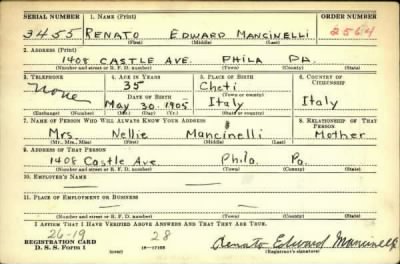 SERIAL NUMBER 1. NAME (Print) ORDER NUMBER
3455 RENATO EDWARD MANCINELLI 2564
(First) (Middle) (Last)
2. ADDRESS (Print)
1408 CASTLE AVE. PHILA PA.
(Number and street or R. F. D. number) (Town) (County) (State)
3. TELEPHONE 4. AGE IN YEARS 5. PLACE OF BIRTH 6. COUNTRY OF CITIZENSHIP
None 35 Cheti
DATE OF BIRTH (Town or county)
May 30. 1905 Italy Italy
(Exchange) (Number) (Mo.) (Day) (Yr.) (State or country)
7. NAME OF PERSON WHO WILL ALWAYS KNOW YOUR ADDRESS 8. RELATIONSHIP OF THAT PERSON
Mrs. Nellie Mancinelli Mother
(Mr., Mrs., Miss) (First) (Middle) (Last)
9. ADDRESS OF THAT PERSON
1408 Castle Ave. Phila. Pa.
(Number and street or R. F. D. number) (Town) (County) (State)
10. EMPLOYER'S NAME
11. PLACE OF EMPLOYMENT OR BUSINESS
(Number and street or R. F. D. number) (Town) (County) (State)
I AFFIRM THAT I HAVE VERIFIED ABOVE ANSWERS AND THAT THEY ARE TRUE.
26-19 28 Renato Edward Mancinelli
REGISTRATION CARD
D. S. S. Form 1 (over) (Registrant's signature)